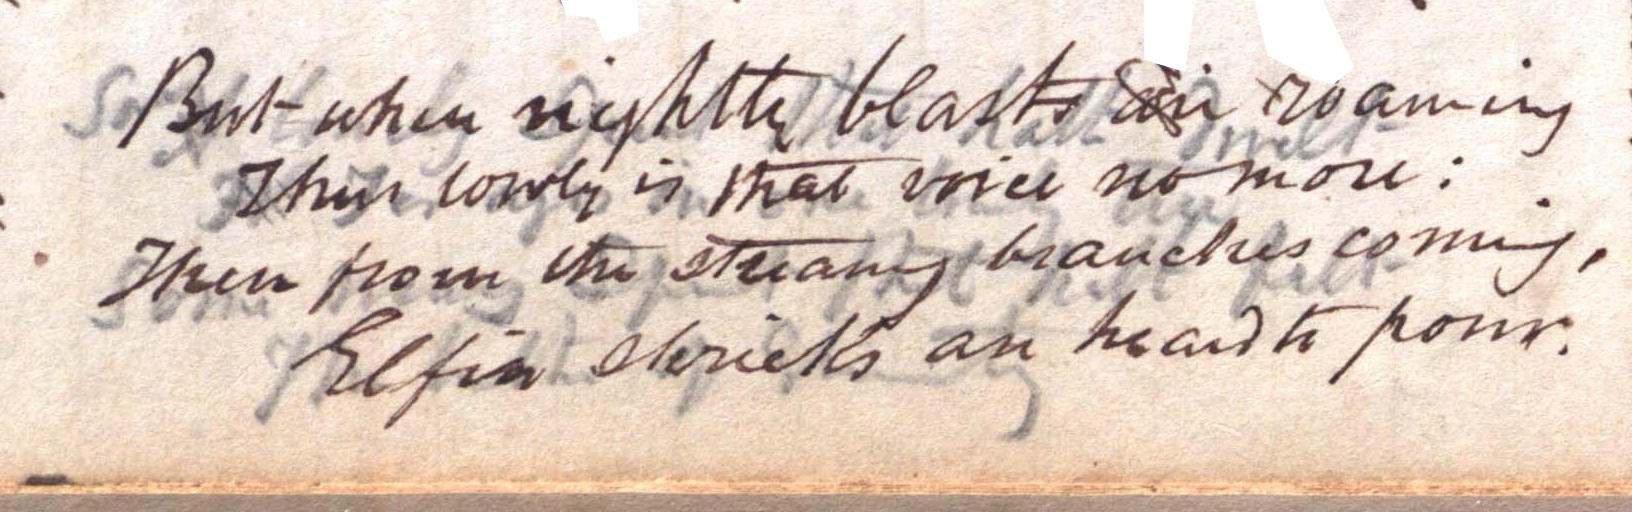 But when nightly blasts in roaming
Then lowly is that voice no more:
Then from the streamy branches coming,
Elfin shrieks are heard to pour.